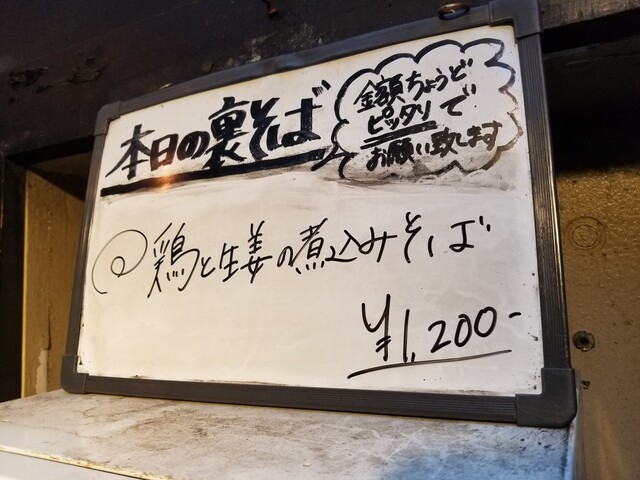 本日の裏そば
金額ちょうど
ピッタリで
お願い致します
◎鶏と生姜の煮込みそば
¥1,200-